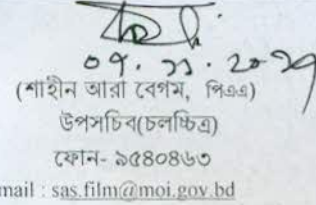 ০৭. ১১.
(শাহীন আরা বেগম, পিএএ)
উপসচিব(চলচ্চিত্র)
ফোন- ৯৫৪০৪৬৩
mail : sas.film@moi.gov.bd